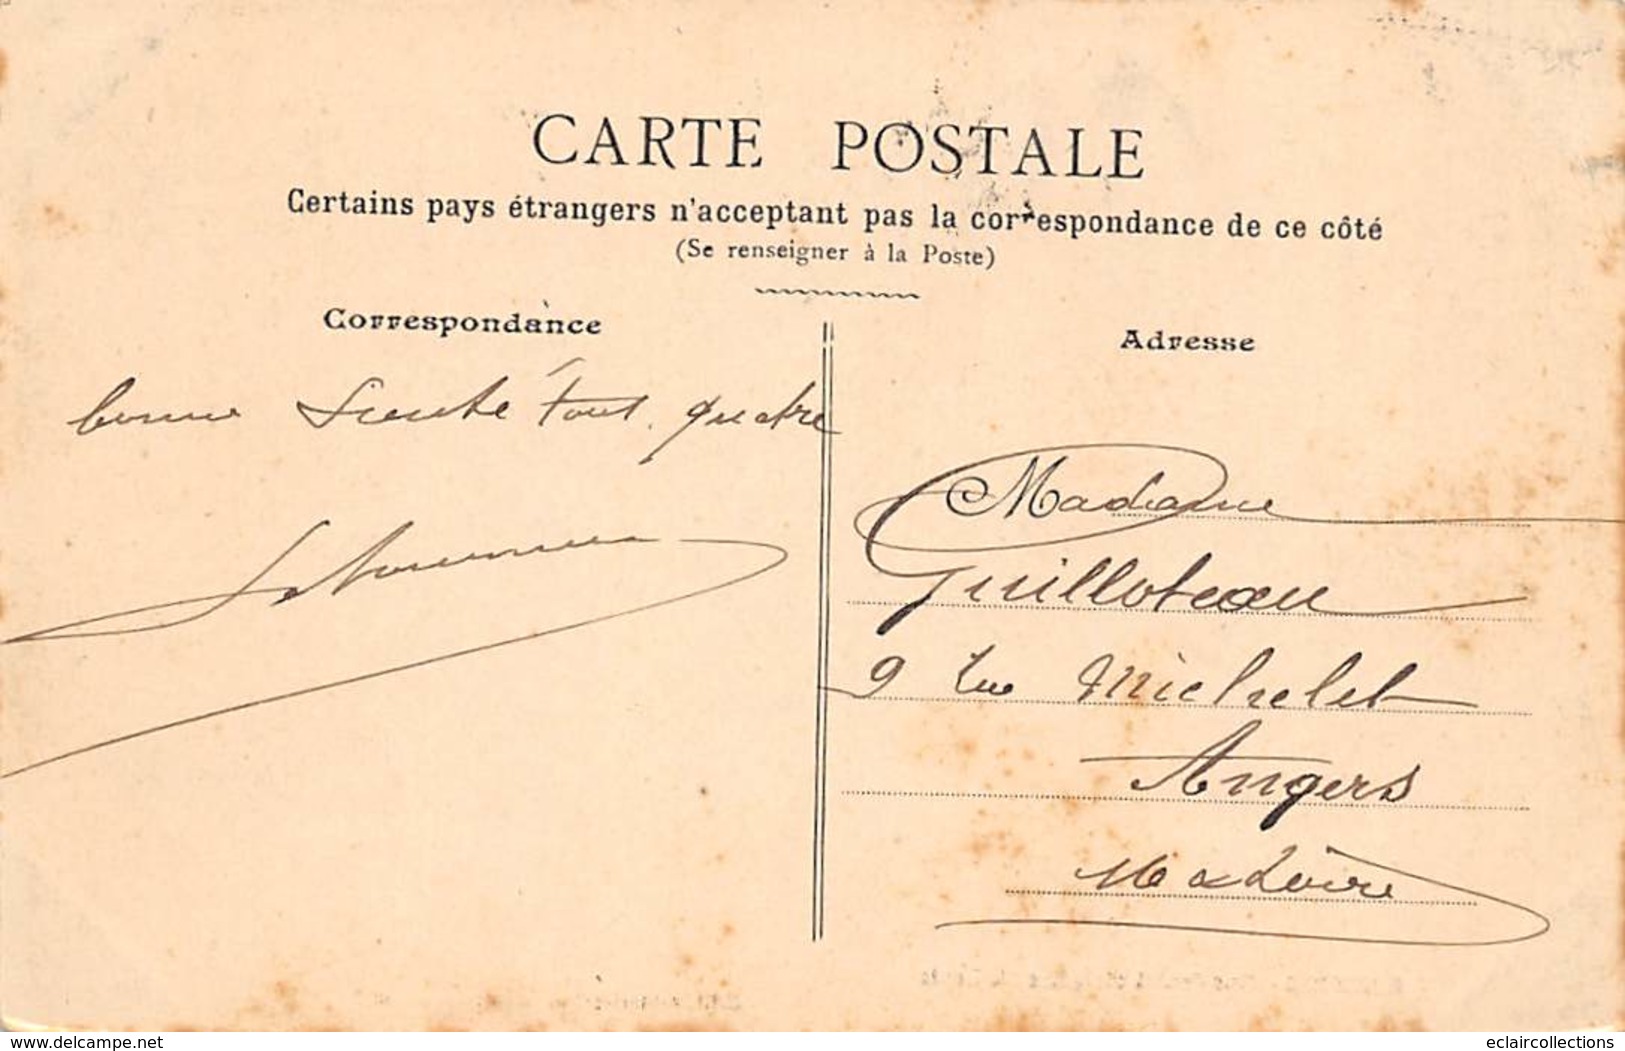 CARTE POSTALE
Certains pays étrangers n'acceptant pas la correspondance de ce côté
(Se renseigner à la Poste)
Correspondance
Adresse
bonne Santé tout. quatre
Madame
Guilloteau
9 rue Michelet
Angers
M & Loire
www.delcampe.net
eclaircollections